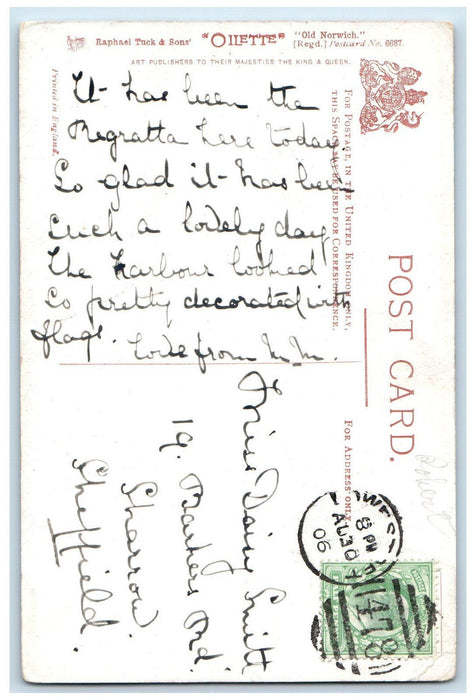 Raphael Tuck & Sons' "OILETTE" "Old Norwich."
[Regd.] Postcard No. 6687.
ART PUBLISHERS TO THEIR MAJESTIES THE KING & QUEEN.
Printed in England.
It has been the
Regratta here today
So glad it has been
such a lovely day
The Harbour looked
so pretty decorated with
flags. Love from M.M.
FOR POSTAGE IN THE UNITED KINGDOM ONLY,
THIS SPACE MAY BE USED FOR CORRESPONDENCE.
POST CARD.
FOR ADDRESS ONLY.
Miss Daisy Smith
19. Barkers Rd.
Sharrow
Sheffield.
8 PM
AU 30
06
478